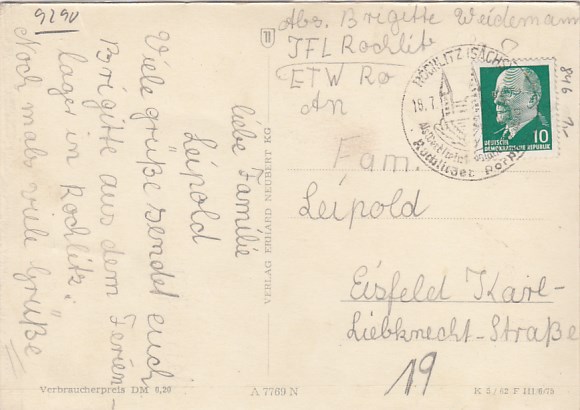 9290
liebe Familie
Leipold
Viele grüße sendet euch
Brigitte aus dem Ferien-
lager in Rochlitz:
Noch mals viele Grüße
Verbraucherpreis DM 0,20
VERLAG ERHARD NEUBERT KG
A 7769 N
Abs. Brigitte Weidemann
JFL Rochlitz
ETW Ro
An
ROCHLITZ (SACHS)
18.7
Rochlitzer Porph
DEUTSCHE
DEMOKRATISCHE REPUBLIK
10
846
1,-
Fam.
Leipold
Eisfeld Karl-
Liebknecht-Straße
19
K 2/62 F III/6/75